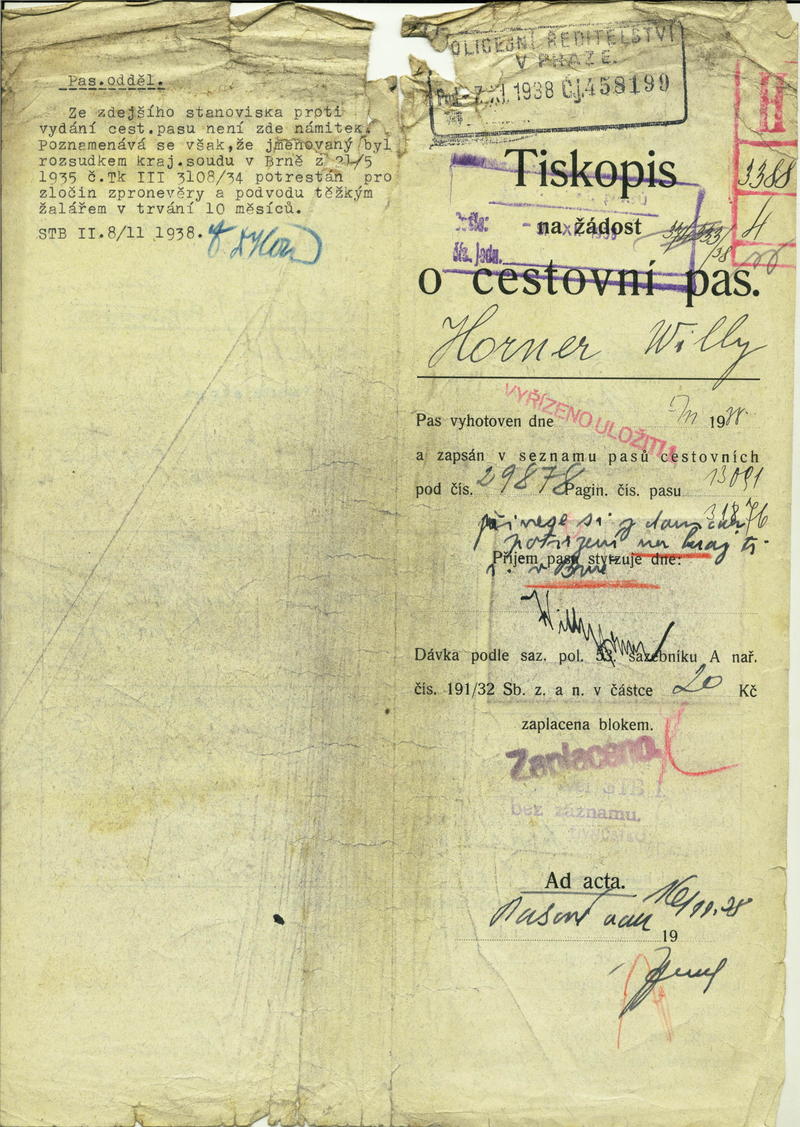 Pas.odděl.
Ze zdejšího stanoviska proti
vydání cest.pasu není zde námitek.
Poznamenává se však,že jmenovaný byl
rozsudkem kraj.soudu v Brně z 21/5
1935 č.Tk III 3108/34 potrestán pro
zločin zpronevěry a podvodu těžkým
žalářem v trvání 10 měsíců.
STB II.8/11 1938.
POLICEJNÍ ŘEDITELSTVÍ
V PRAZE.
1938 Čj.458199
3388
4
Tiskopis
na žádost
o cestovní pas.
Horner Willy
VYŘÍZENO ULOŽITI
Pas vyhotoven dne 19
a zapsán v seznamu pasů cestovních
pod čís. 29878 Pagin. čís. pasu 13091
31876
přiveze si
potvrzení na kraj
v Brně
Příjem pasu stvrzuje dne:
Willy Horner
Dávka podle saz. pol. 53. sazebníku A nař.
čís. 191/32 Sb. z. a n. v částce 20 Kč
zaplacena blokem.
Zaplaceno.
STB
bez záznamu.
Ad acta.
19